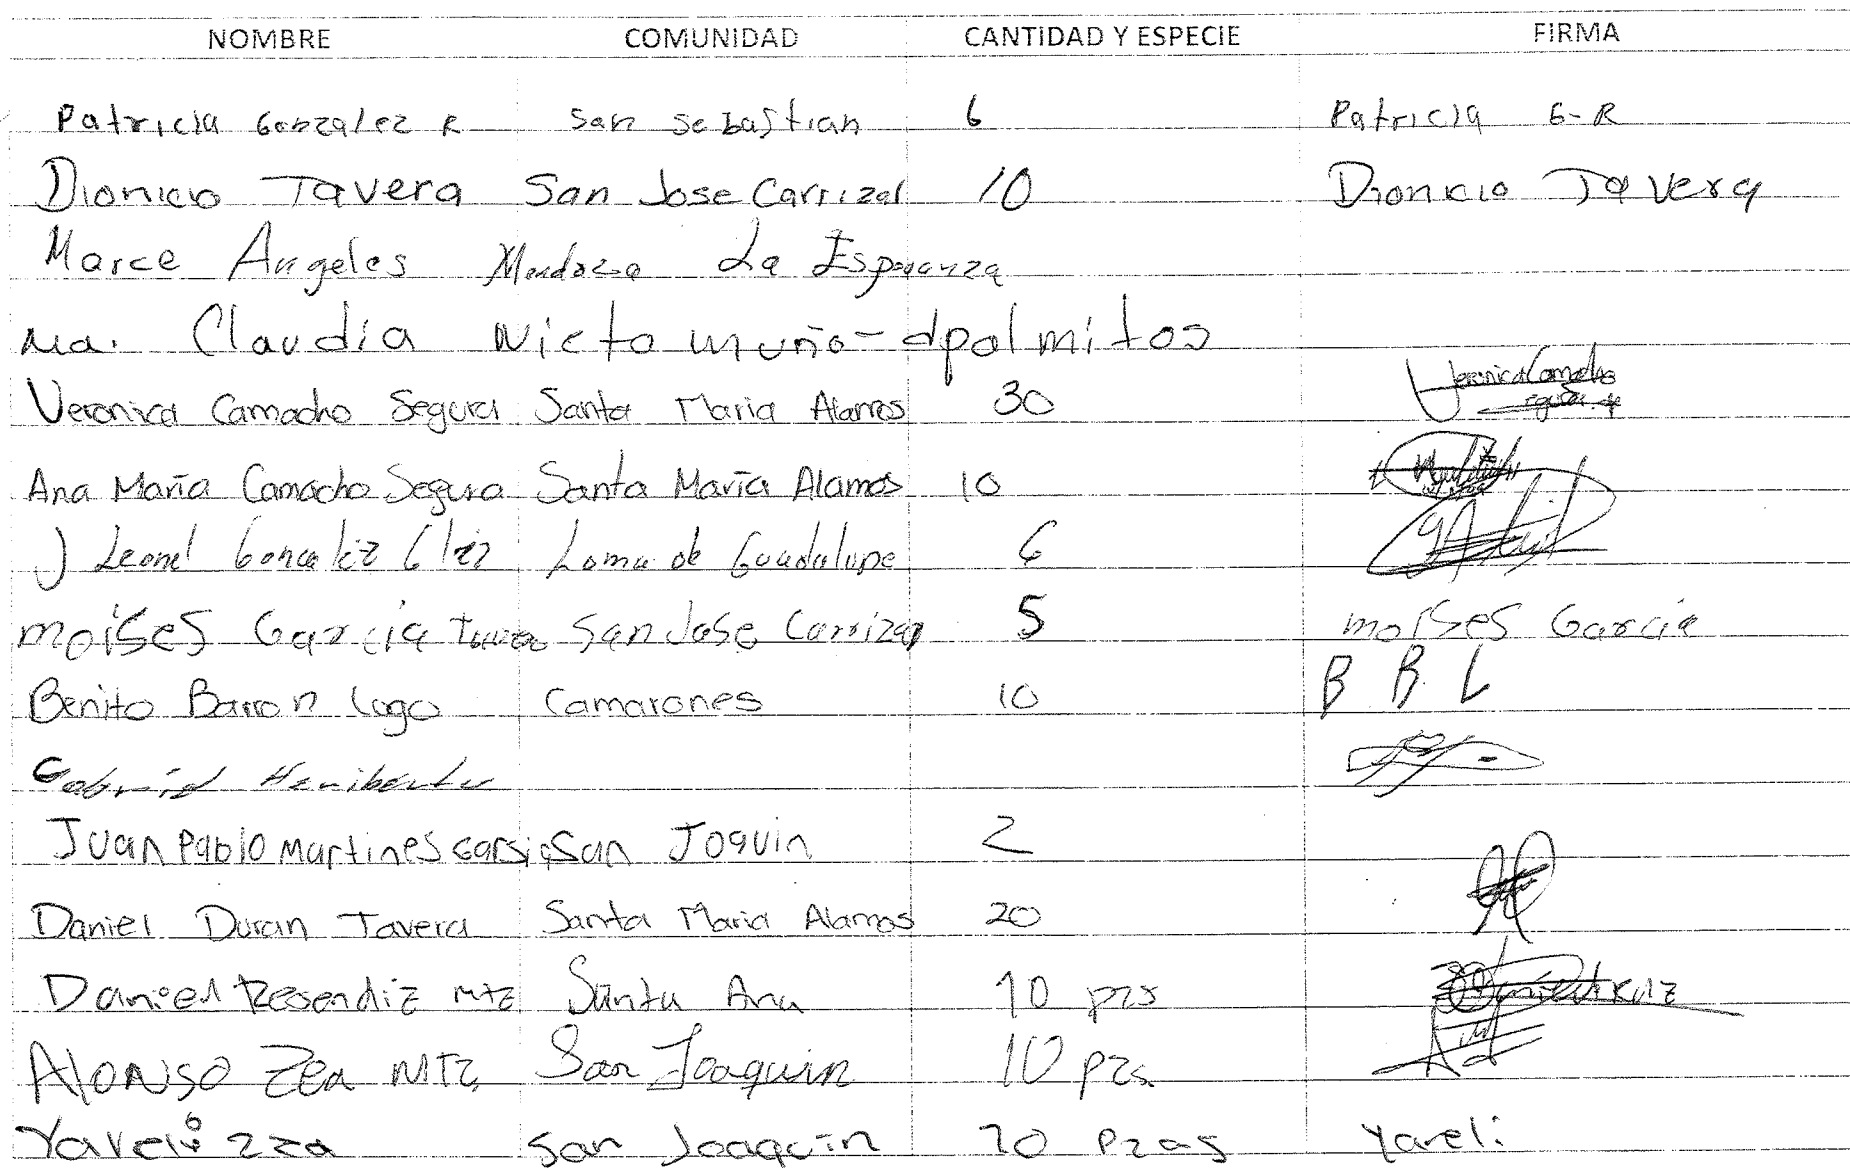 NOMBRE COMUNIDAD CANTIDAD Y ESPECIE FIRMA
Patricia Gonzalez R San Sebastian 6 Patricia G-R
Dionicio Tavera San Jose Carrizal 10 Dionicio Tavera
Marce Angeles Mendoza La Esperanza
Ma. Claudia Nieto muño- dpalmitos
Veronica Camacho Segura Santa Maria Alamos 30 Veronica Camacho
Ana María Camacho Segura Santa María Alamos 10
J Leonel Gonzalez Loma de Guadalupe 6
moises Garcia San Jose Carrizal 5 moises Garcia
Benito Barron Lugo Camarones 10 B B. L
Gabriel Heriberto
Juan Pablo Martines Garsia San Joquin 2
Daniel Duran Tavera Santa Maria Alamos 20
Daniel Resendiz Mtz Santa Ana 10 pzs
Alonso Zea MTZ San Joaquin 10 pzs
Yareli zea San Joaquin 10 Pzas Yareli